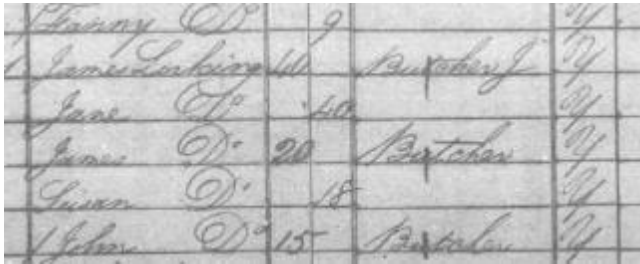 Fanny Do 9 Y
James Lorking 40 Butcher J Y
Jane Do 40 Y
James Do 20 Butcher Y
Susan Do 18 Y
1 John Do 15 Butcher Y